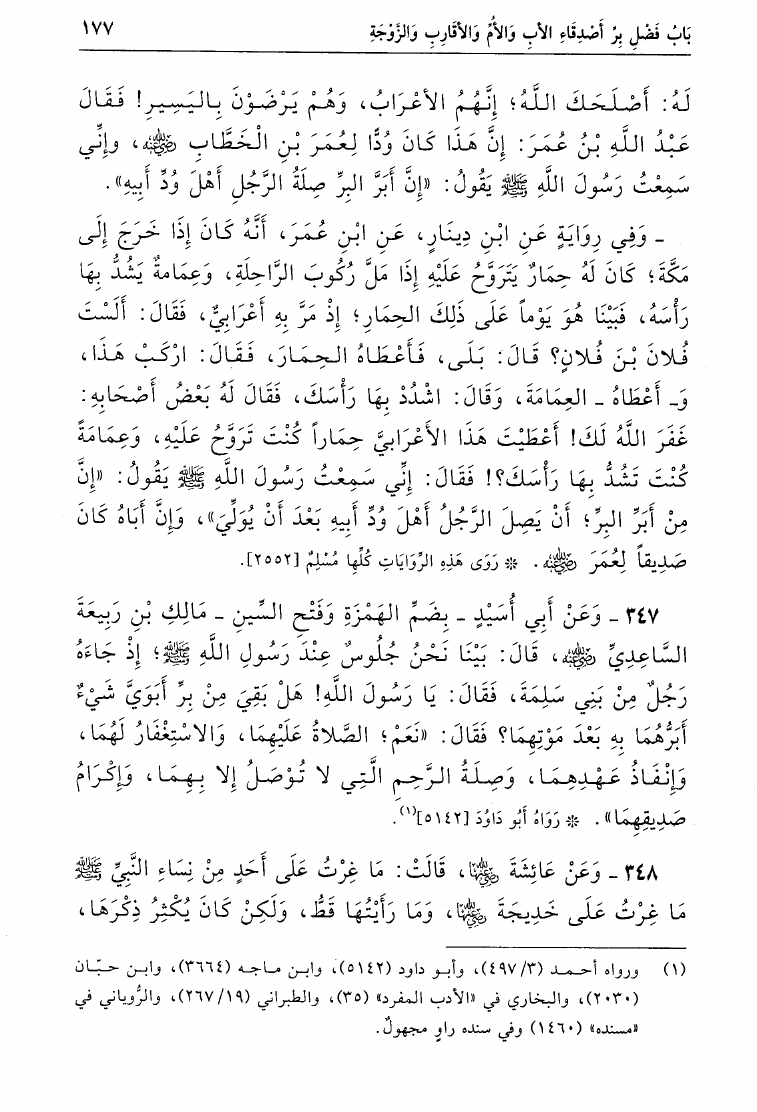 بَابُ فَضْلِ بِرِّ أَصْدِقَاءِ الأَبِ وَالأُمِّ وَالأَقَارِبِ وَالزَّوْجَةِ ١٧٧
لَهُ: أَصْلَحَكَ اللَّهُ؛ إِنَّهُمُ الأَعْرَابُ، وَهُمْ يَرْضَوْنَ بِاليَسِيرِ! فَقَالَ
عَبْدُ اللَّهِ بْنُ عُمَرَ: إِنَّ هَذَا كَانَ وُدًّا لِعُمَرَ بْنِ الْخَطَّابِ رضي الله عنه، وإِنِّي
سَمِعْتُ رَسُولَ اللَّهِ ﷺ يَقُولُ: «إِنَّ أَبَرَّ البِرِّ صِلَةُ الرَّجُلِ أَهْلَ وُدِّ أَبِيهِ».
ـ وَفِي رِوَايَةٍ عَنِ ابْنِ دِينَارٍ، عَنِ ابْنِ عُمَرَ، أَنَّهُ كَانَ إِذَا خَرَجَ إِلَى
مَكَّةَ؛ كَانَ لَهُ حِمَارٌ يَتَرَوَّحُ عَلَيْهِ إِذَا مَلَّ رُكُوبَ الرَّاحِلَةِ، وَعِمَامَةٌ يَشُدُّ بِهَا
رَأْسَهُ، فَبَيْنَا هُوَ يَوْماً عَلَى ذَلِكَ الحِمَارِ؛ إِذْ مَرَّ بِهِ أَعْرَابِيٌّ، فَقَالَ: أَلَسْتَ
فُلَانَ بْنَ فُلَانٍ؟ قَالَ: بَلَى، فَأَعْطَاهُ الحِمَارَ، فَقَالَ: ارْكَبْ هَذَا،
وَـ أَعْطَاهُ ـ العِمَامَةَ، وَقَالَ: اشْدُدْ بِهَا رَأْسَكَ، فَقَالَ لَهُ بَعْضُ أَصْحَابِهِ:
غَفَرَ اللَّهُ لَكَ! أَعْطَيْتَ هَذَا الأَعْرَابِيَّ حِمَاراً كُنْتَ تَرَوَّحُ عَلَيْهِ، وَعِمَامَةً
كُنْتَ تَشُدُّ بِهَا رَأْسَكَ؟! فَقَالَ: إِنِّي سَمِعْتُ رَسُولَ اللَّهِ ﷺ يَقُولُ: «إِنَّ
مِنْ أَبَرِّ البِرِّ؛ أَنْ يَصِلَ الرَّجُلُ أَهْلَ وُدِّ أَبِيهِ بَعْدَ أَنْ يُوَلِّيَ»، وَإِنَّ أَبَاهُ كَانَ
صَدِيقاً لِعُمَرَ رضي الله عنه. * رَوَى هَذِهِ الرِّوَايَاتِ كُلَّها مُسْلِمٌ [٢٥٥٢].
٣٤٧ ـ وَعَنْ أَبِي أُسَيْدٍ ـ بِضَمِّ الهَمْزَةِ وَفَتْحِ السِّينِ ـ مَالِكِ بْنِ رَبِيعَةَ
السَّاعِدِيِّ رضي الله عنه، قَالَ: بَيْنَا نَحْنُ جُلُوسٌ عِنْدَ رَسُولِ اللَّهِ ﷺ؛ إِذْ جَاءَهُ
رَجُلٌ مِنْ بَنِي سَلِمَةَ، فَقَالَ: يَا رَسُولَ اللَّهِ! هَلْ بَقِيَ مِنْ بِرِّ أَبَوَيَّ شَيْءٌ
أَبَرُّهُمَا بِهِ بَعْدَ مَوْتِهِمَا؟ فَقَالَ: «نَعَمْ؛ الصَّلَاةُ عَلَيْهِمَا، وَالاسْتِغْفَارُ لَهُمَا،
وَإِنْفَاذُ عَهْدِهِمَا، وَصِلَةُ الرَّحِمِ الَّتِي لا تُوْصَلُ إِلا بِهِمَا، وَإِكْرَامُ
صَدِيقِهِمَا». * رَوَاهُ أَبُو دَاوُدَ [٥١٤٢](١).
٣٤٨ ـ وَعَنْ عَائِشَةَ رضي الله عنها، قَالَتْ: مَا غِرْتُ عَلَى أَحَدٍ مِنْ نِسَاءِ النَّبِيِّ ﷺ
مَا غِرْتُ عَلَى خَدِيجَةَ رضي الله عنها، وَمَا رَأَيْتُهَا قَطُّ، وَلَكِنْ كَانَ يُكْثِرُ ذِكْرَهَا،
(١) ورواه أحمد (٤٩٧/٣)، وأبو داود (٥١٤٢)، وابن ماجه (٣٦٦٤)، وابن حبّان
(٢٠٣٠)، والبخاري في «الأدب المفرد» (٣٥)، والطبراني (٢٦٧/١٩)، والرُّوياني في
«مسنده» (١٤٦٠) وفي سنده راوٍ مجهولٌ.